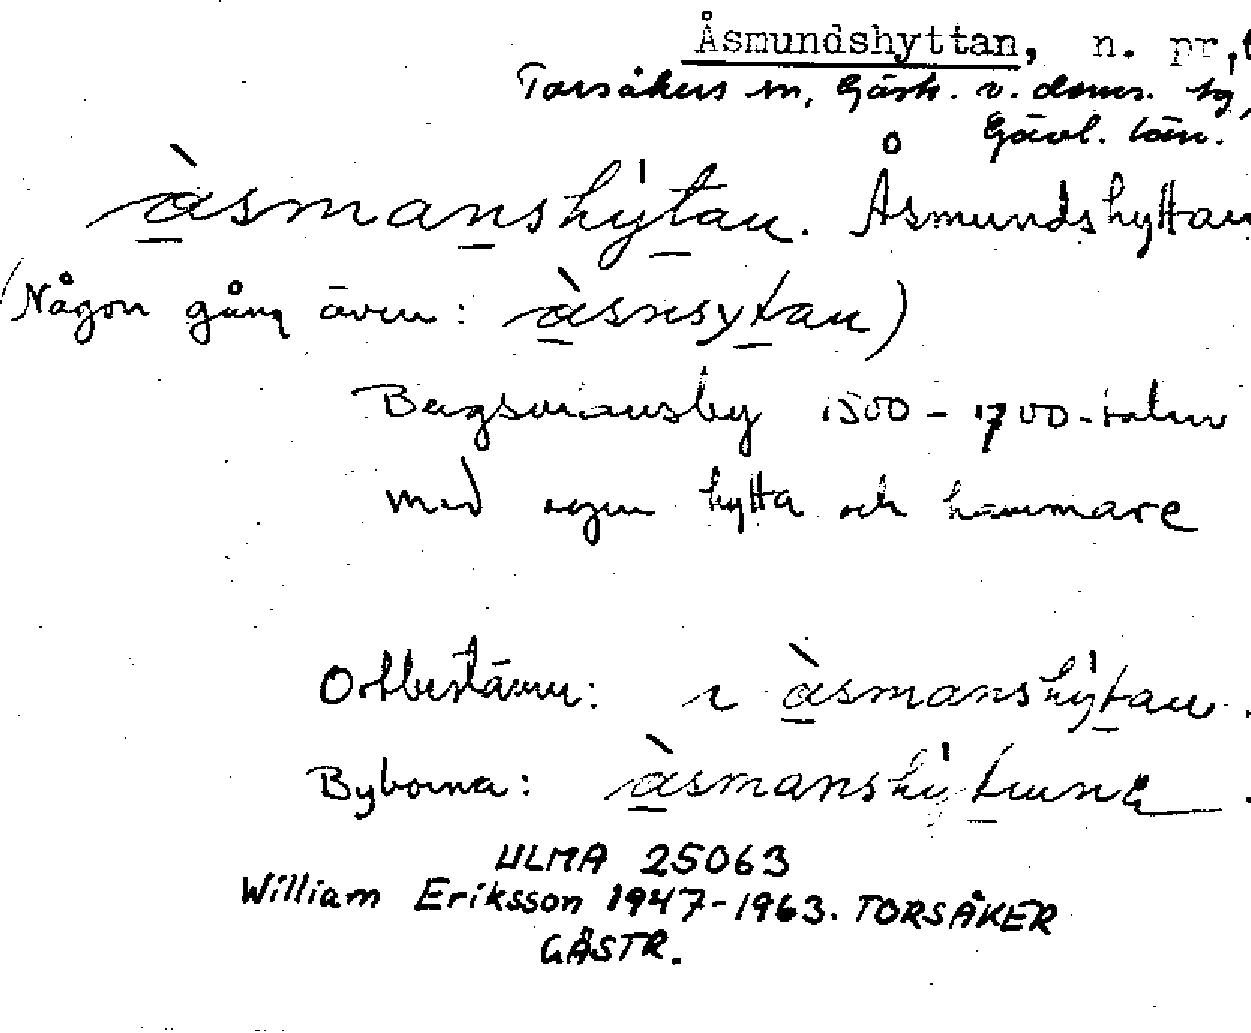 Åsmundshyttan, n. pr.,
Torsåkers sn, Gästr. v. doms. by,
Gävl. län.
àsmanshy̍tan. Åsmundshyttan
(Någon gång även: àsnsytan)
Bergsmansby 1500-1700-talen
med egen hytta och hammare
Ortbestämn: i àsmanshy̍tan.
Byborna: àsmanshy̍tɹuna.
ULMA 25063
William Eriksson 1947-1963. TORSÅKER
GÄSTR.